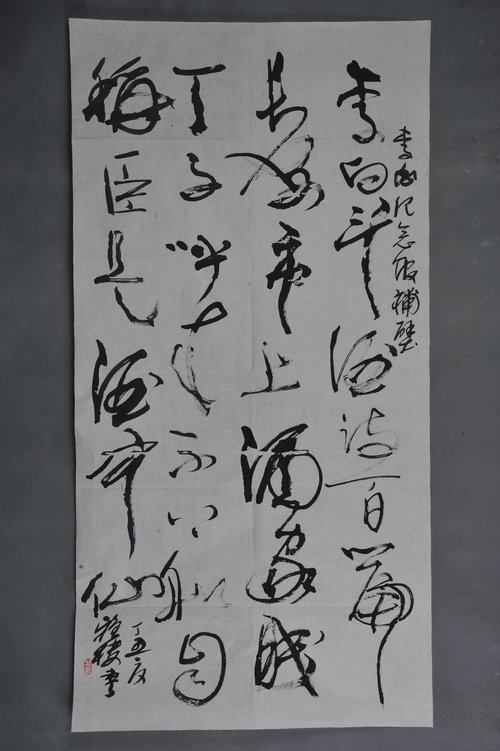 李白纪念馆補壁
李白斗酒诗百篇
长安市上酒家眠
天子呼来不上船自
稱臣是酒中仙
丁丑夏